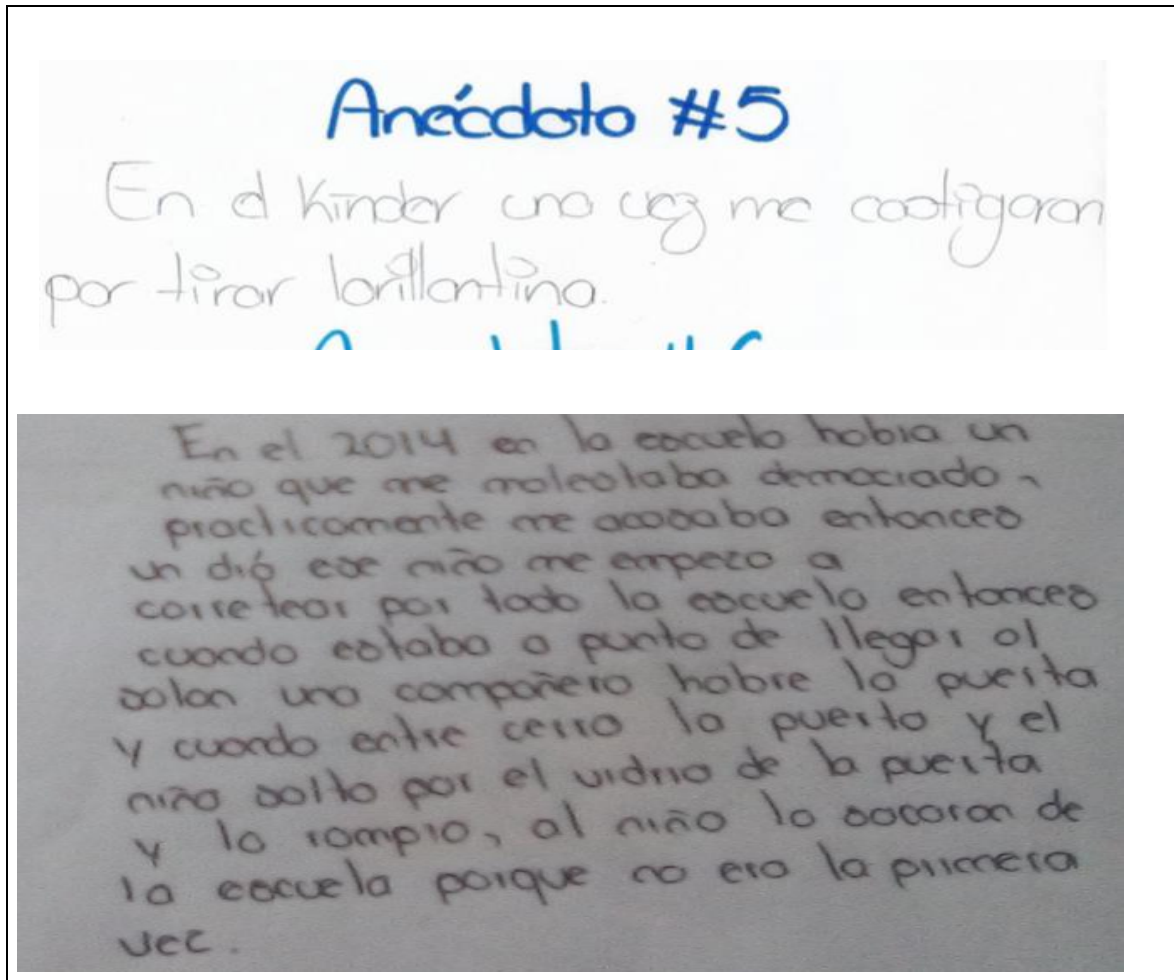 Anécdota #5
En el Kinder una vez me castigaron
por tirar brillantina.
En el 2014 en la escuela habia un
niño que me molestaba demaciado,
practicamente me acosaba entonces
un diá ese niño me empezo a
corretear por toda la escuela entonces
cuando estaba a punto de llegar al
salon una compañero habre la puerta
y cuando entre cerro la puerta y el
niño salto por el vidrio de la puerta
y lo rompio, al niño lo sacaron de
la escuela porque no era la primera
vez.